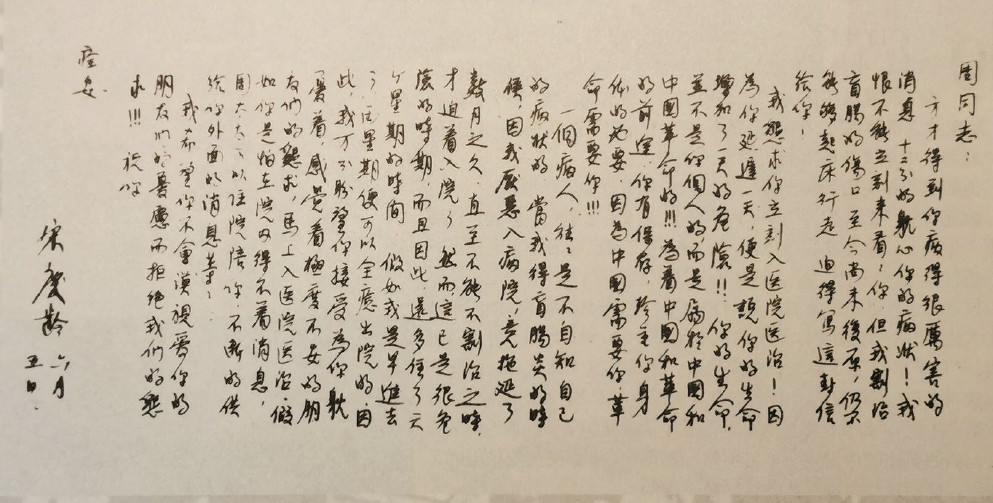 周同志:
方才得到你病得很厲害的
消息,十二分的躭心你的病狀!我
恨不能立刻来看你,但我割治
盲腸的傷口至今尚未復原,仍不
能够起床行走,迫得写這封信
給你!
我懇求你立刻入医院医治!因
為你延遲一天,便是說你的生命
增加了一天的危險!!你的生命,
並不是你個人的,而是屬於中國和
中國革命的!!!為着中國和革命
的前途,你有保存,珍重你身
体的必要,因為中國需要你,革
命需要你!!!
一個病人,往往是不自知自己
的病狀的,當我得盲腸炎的時
候,因我厭惡入病院,竟拖延了
数月之久,直至不能不割治之時,
才迫着入院了,然而這已是很危
險的時期,而且因此,還多住了六
个星期的時间,假如我是早進去
了,兩星期便可以全癒出院的,因
此,我万分盼望你接受為你躭
憂着,感觉着極度不安的朋
友們的懇求,馬上入医院医治,假
如你是怕在院内得不着消息,
周太太可以住院陪你,不断的供
給你外面的消息等,
我希望你不會漠視愛你的
朋友們的憂慮而拒绝我們的懇
求!!!祝你
痊安
宋慶齡 六月
五日.